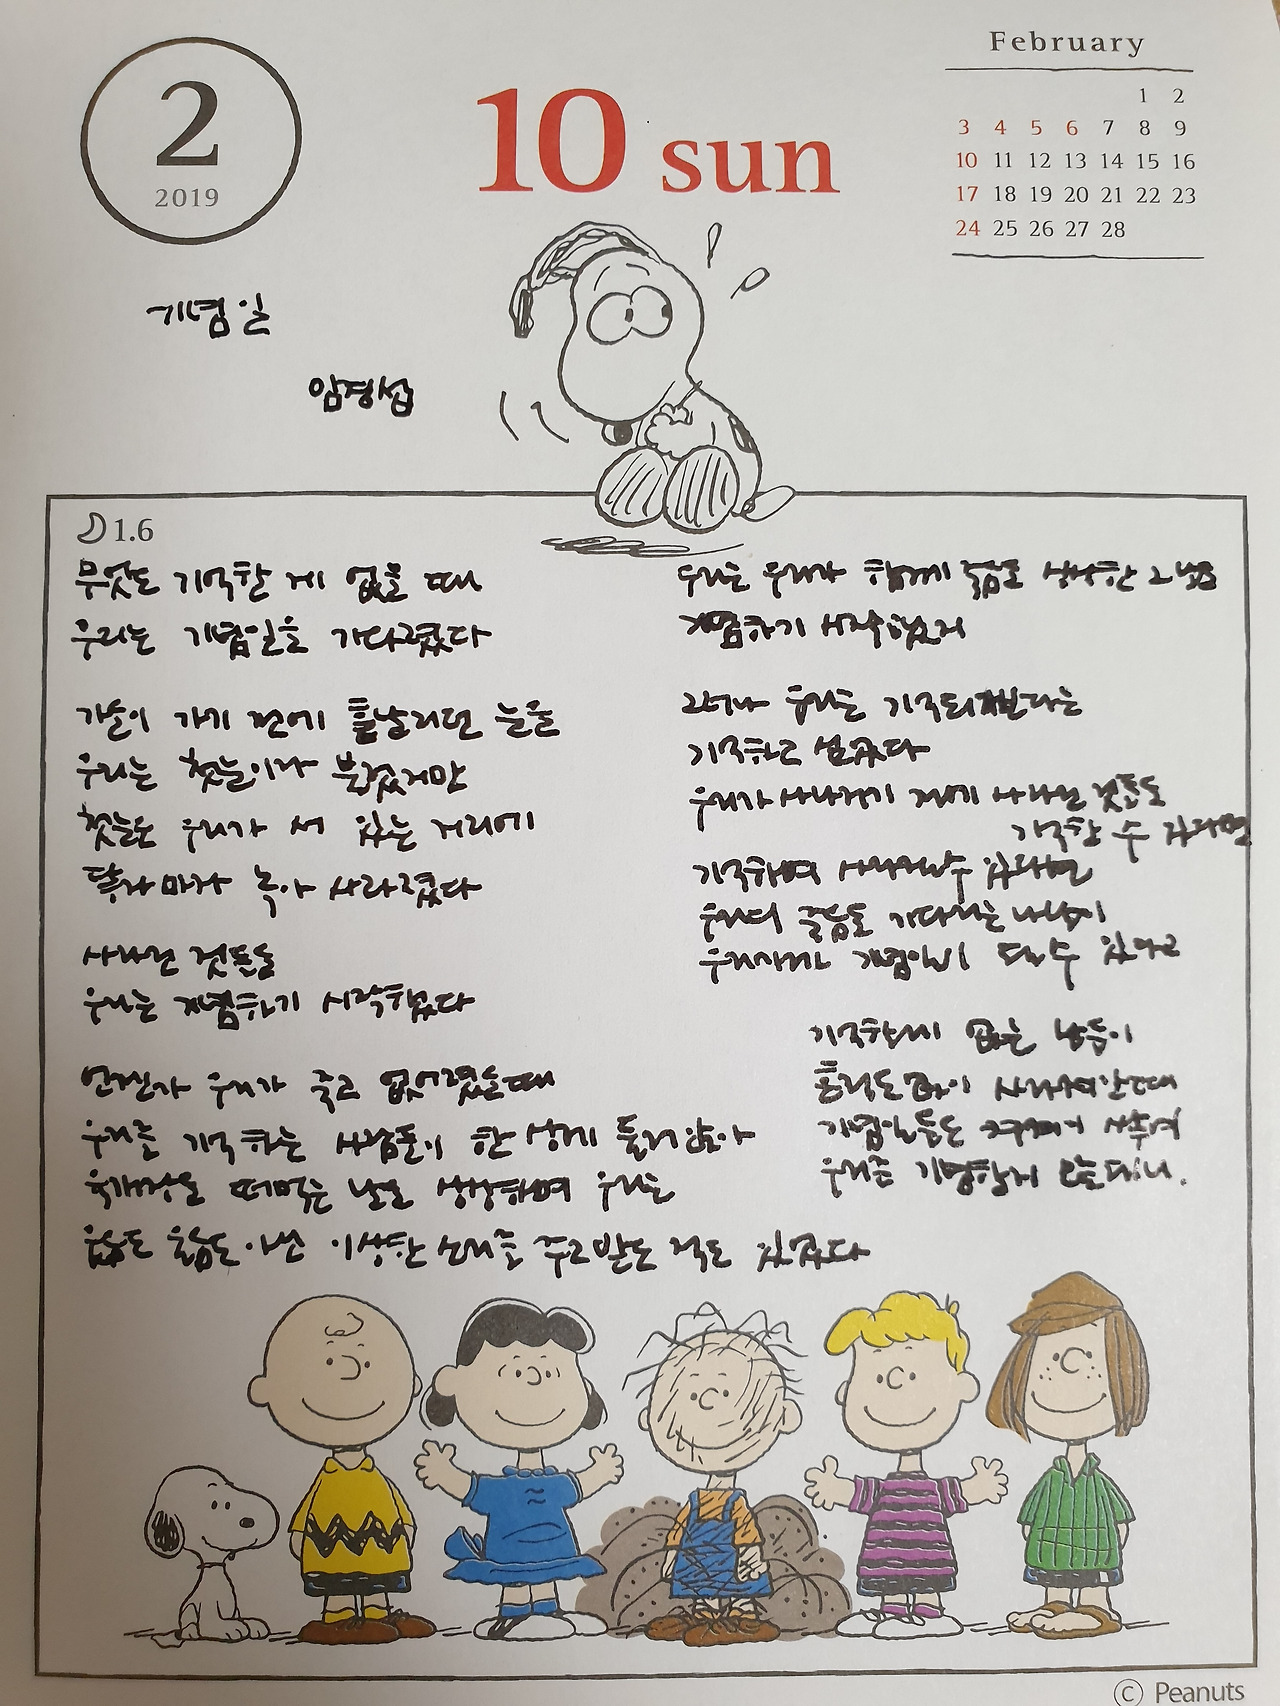 2
2019
10 sun
February
1 2
3 4 5 6 7 8 9
10 11 12 13 14 15 16
17 18 19 20 21 22 23
24 25 26 27 28
기념일
임경섭
1.6
무엇도 기억할 게 없을 때
우리는 기념일을 기다렸다
가을이 가기 전에 흩날리던 눈을
우리는 첫눈이라 불렀지만
첫눈은 우리가 서 있는 거리에
닿자마자 녹아 사라졌다
사라진 것들을
우리는 기념하기 시작했다
언젠가 우리가 죽고 없어졌을 때
우리를 기억하는 사람들이 한 상에 둘러앉아
육개장을 떠먹는 날을 상상하며 우리는
웃음도 울음도 아닌 이상한 소리를 주고받은 적도 있었다
우리는 우리가 함께 죽음을 상상한 그날을
기념하기 시작했지
그러나 우리는 기억되기보다는
기억하고 싶었다
우리가 사라지기 전에 사라진 것들을
기억할 수 있다면
기억하며 사라질 수 있다면
우리의 죽음을 기다리는 나날이
우리에게 기념일이 될 수 있다고
기억할 게 없는 날들이
흔적도 없이 사라져갈 때
기념일들은
우리를 기념할지 모를 테니.
© Peanuts